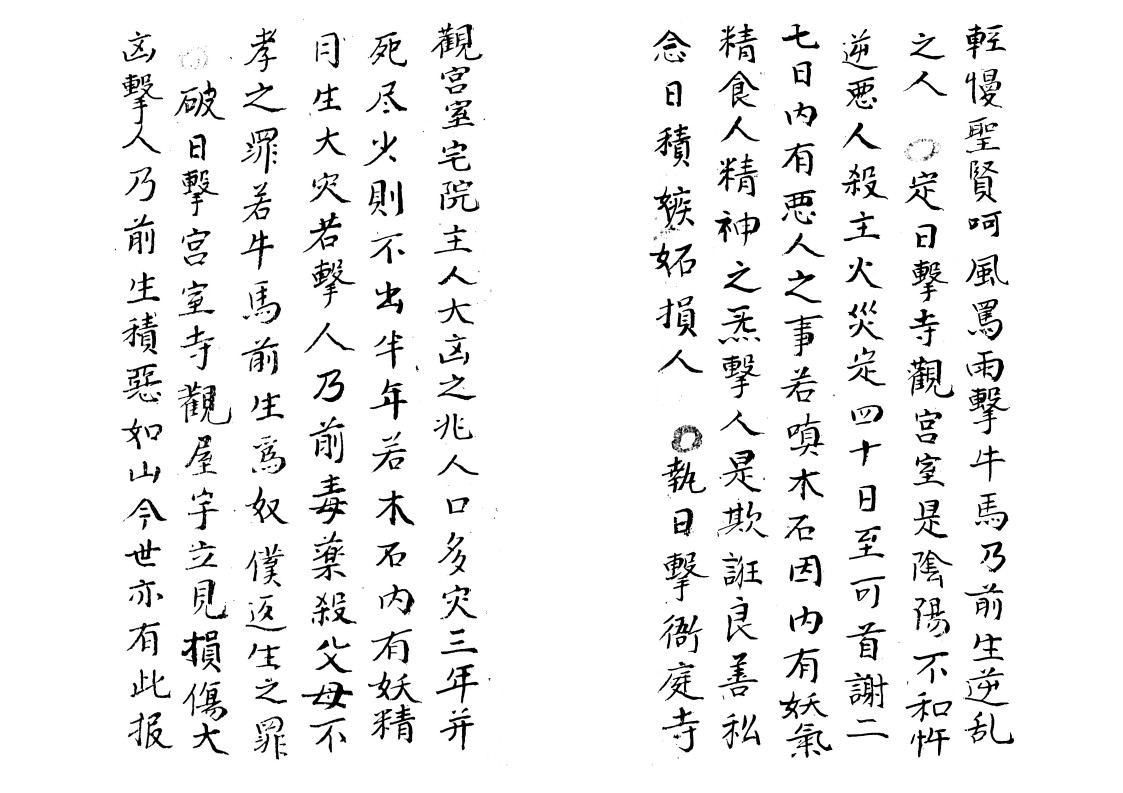 輕慢聖賢呵風罵雨擊牛馬乃前生逆乱
之人　○定日擊寺觀宮室是陰陽不和忤
逆悪人殺主火災定四十日至可首謝二
七日内有悪人之事若嗔木石因内有妖氣
精食人精神之炁擊人是欺誑良善私
念日積嫉妬損人　○執日擊衙庭寺
觀宮室宅院主人大凶之兆人口多灾三年并
死尽火則不出半年若木石内有妖精
月生大灾若擊人乃前毒藥殺父母不
孝之罪若牛馬前生為奴僕返生之罪
○破日擊宮室寺觀屋宇立見損傷大
凶擊人乃前生積惡如山今世亦有此报